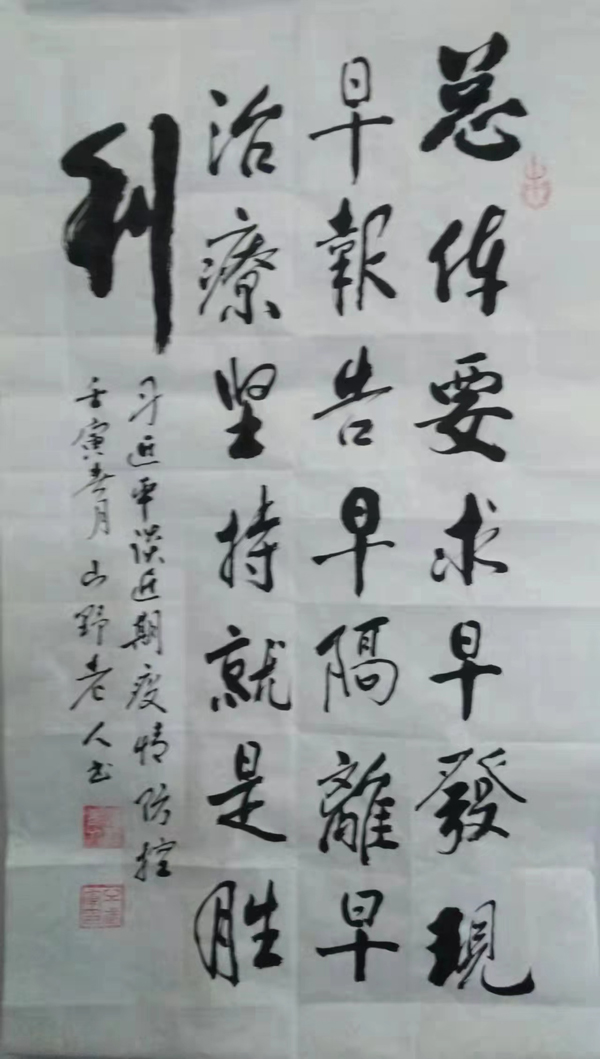 总体要求早發現
早報告早隔離早
治療坚持就是胜
利
习近平谈近期疫情防控
壬寅春月山野老人书